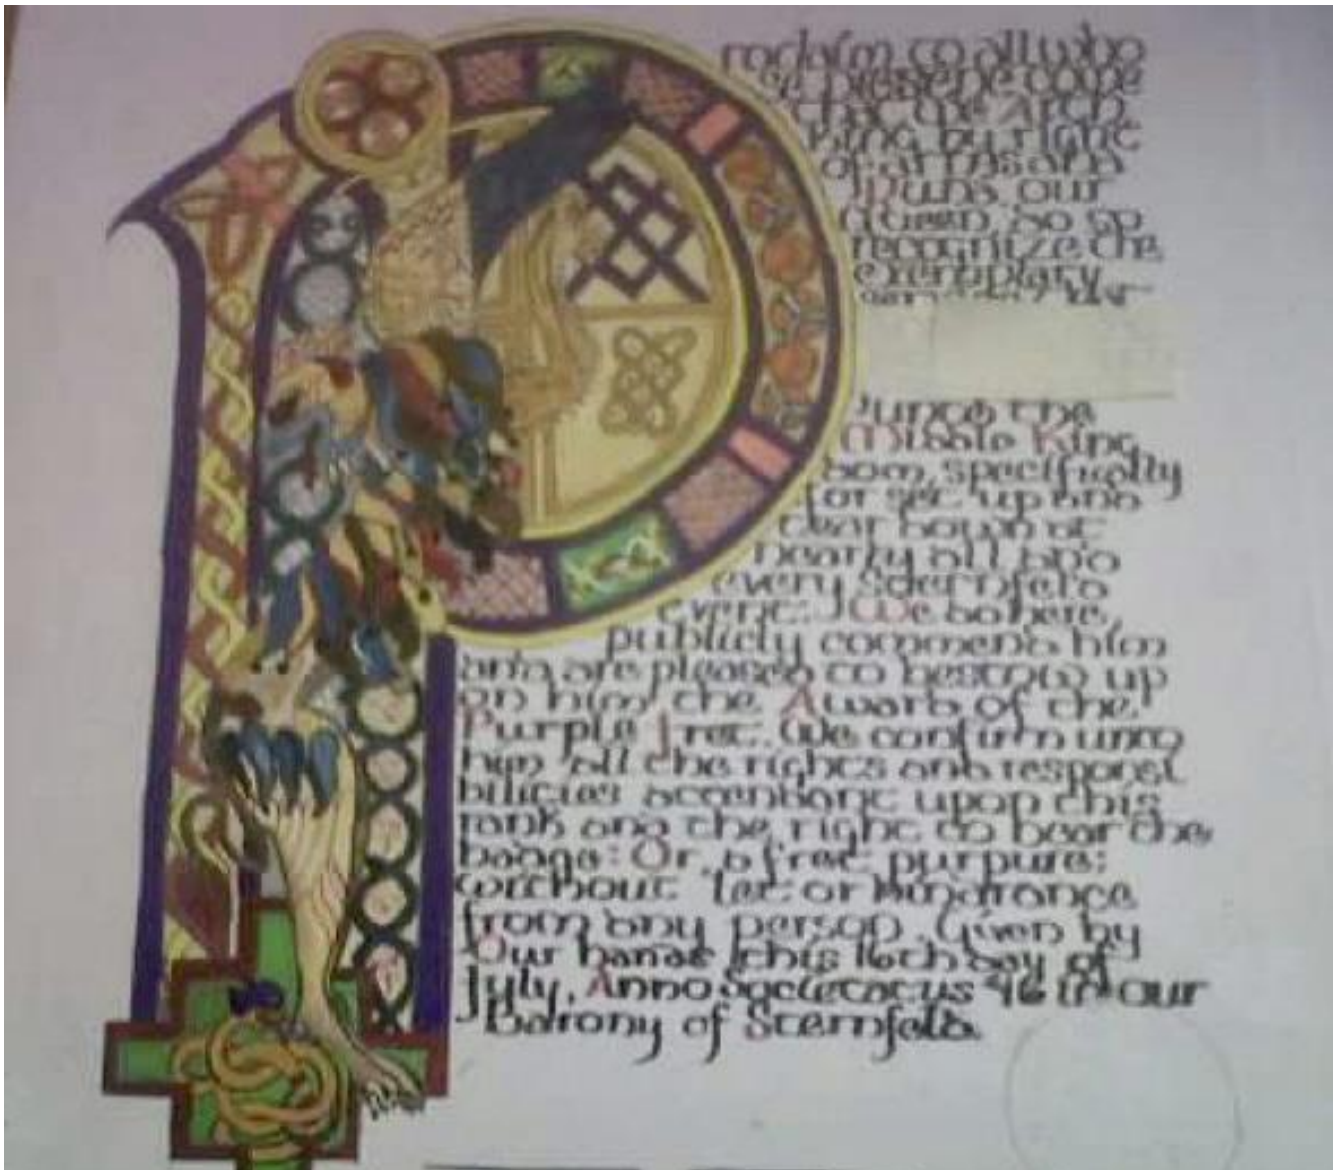 roclaim to all who
se presente come
that we Arch
king by right
of arms and
Runa our
Queen, do so
recognize the
exemplary
unto the
Middle King
dom, specifically
for set up and
tear down at
nearly all and
every Sternfeld
event: We do here,
publicly commend him
and are pleased to bestow up
on him the Award of the
Purple Fret. We confirm unto
him all the rights and responsi
bilities attendant upon this
rank and the right to bear the
badge: Or, a fret purpure:
without let or hindrance
from any person. Given by
Our hands this 16th day of
July, Anno Societatus 46 in our
Barony of Sternfeld.